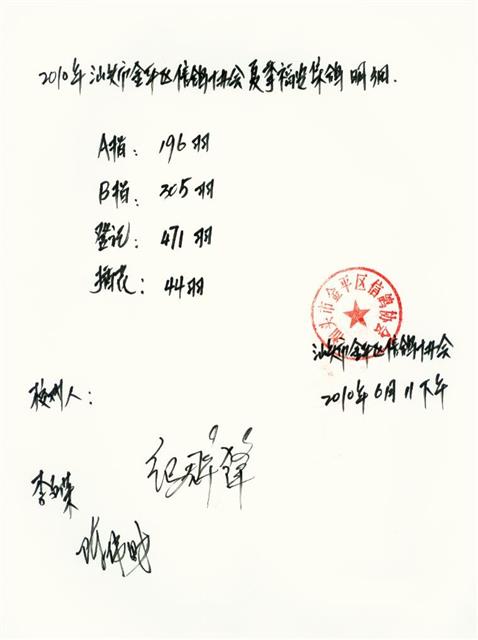 2010年汕头市金平区信鸽协会夏季福安集鸽明细.
A指: 196羽
B指: 305羽
登记: 471羽
插花: 44羽
汕头市金平区信鸽协会
汕头市金平区信鸽协会
2010年6月11下午
核对人: